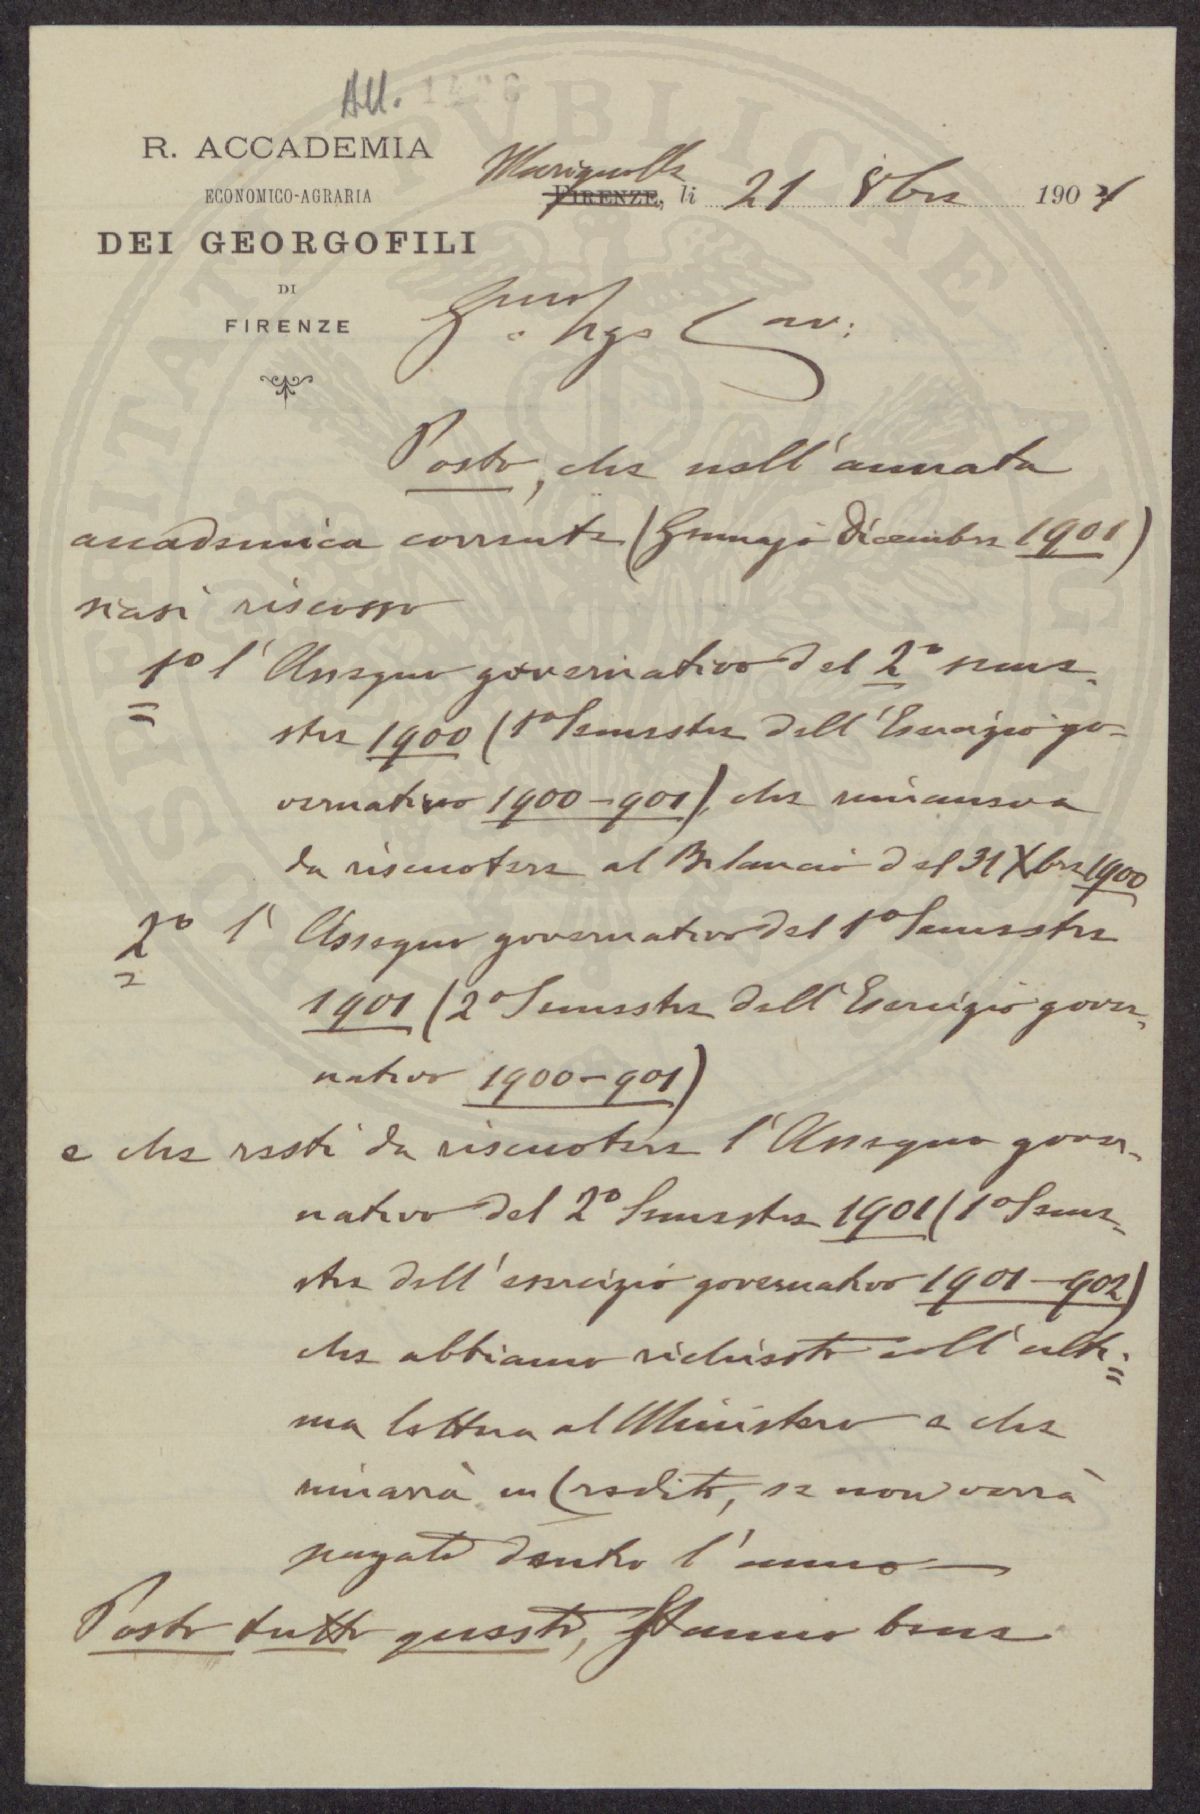 All. 1476
R. ACCADEMIA
ECONOMICO-AGRARIA
DEI GEORGOFILI
DI
FIRENZE
Marignolle
FIRENZE, li 21 8bre 1901
Cav:
Posto, che nell'annata
accademica corrente (Gennajo Dicembre 1901)
siasi riscosso
1º l'Assegno governativo del 2º seme-
stre 1900 (1º Semestre dell'Esercizio go-
vernativo 1900-901), che rimaneva
da riscuotere al Bilancio del 31 Xbre 1900
2º l'Assegno governativo del 1º Semestre
1901 (2º Semestre dell'Esercizio gover-
nativo 1900-901)
e che resti da riscuotere l'Assegno gover-
nativo del 2º Semestre 1901 (1º Seme-
stre dell'esercizio governativo 1901-902)
che abbiamo richiesto coll'ulti=
ma lettera al Ministero e che
rimarrà in Credito, se non verrà
pagato dentro l'anno —
Posto tutto questo, stanno bene
PVBLICAE
PROSPERITATI
AVGENDAE